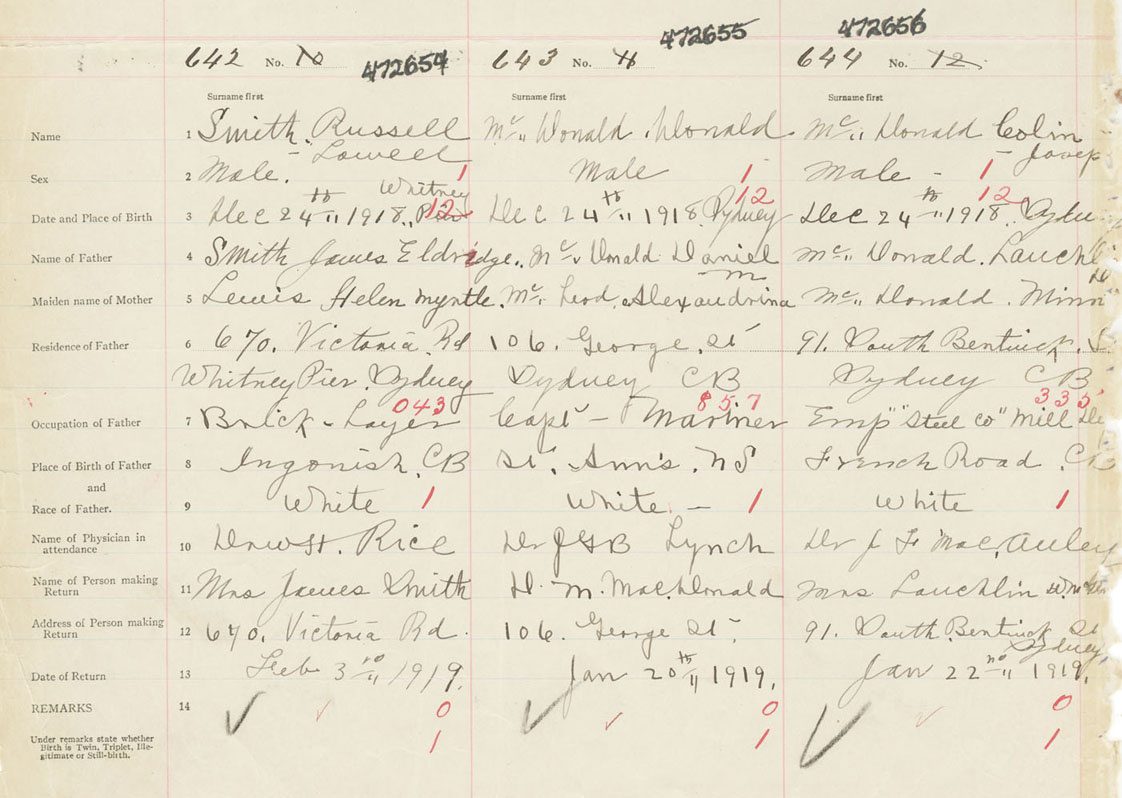 472655 472656
642 No. 10 472654 643 No. 11 644 No. 12
Surname first Surname first Surname first
Name 1 Smith. Russell Mc,, Donald. Donald Mc,, Donald Colin
Lowell
Sex 2 Male. 1 Male 1 Male - 1
Whitney 12 12
Date and Place of Birth 3 Dec 24th,, 1918,, Pier 12 Dec 24th,, 1918 Sydney Dec 24th,, 1918. Sydn
Name of Father 4 Smith James Eldridge. Mc,, Donald. Daniel Mc,, Donald. Lauchl
M
Maiden name of Mother 5 Lewis Helen Myrtle. Mc,, Leod. Alexandrina Mc,, Donald. Minn
Residence of Father 6 670. Victoria. Rd 106. George. St 91. South Bentinck.
Whitney Pier. Sydney Sydney CB Sydney CB
043 857 335
Occupation of Father 7 Brick-Layer Capt - Mariner Emp" "Steel Co" Mill
Place of Birth of Father 8 Ingonish. CB St. Ann's. NS French Road. CB
and
Race of Father. 9 White 1 White - 1 White 1
Name of Physician in
attendance 10 Rice Dr JGB Lynch Dr J F MacAuley
Name of Person making
Return 11 Mrs James Smith D. M. MacDonald Mrs Lauchlin
Address of Person making
Return 12 670. Victoria Rd. 106. George St. 91. South Bentinck St
Sydney
Date of Return 13 Feb 3rd,, 1919. Jan 20th,, 1919. Jan 22nd,, 1919.
REMARKS 14 0 0 0
Under remarks state whether
Birth is Twin, Triplet, Ille-
gitimate or Still-birth. 1 1 1